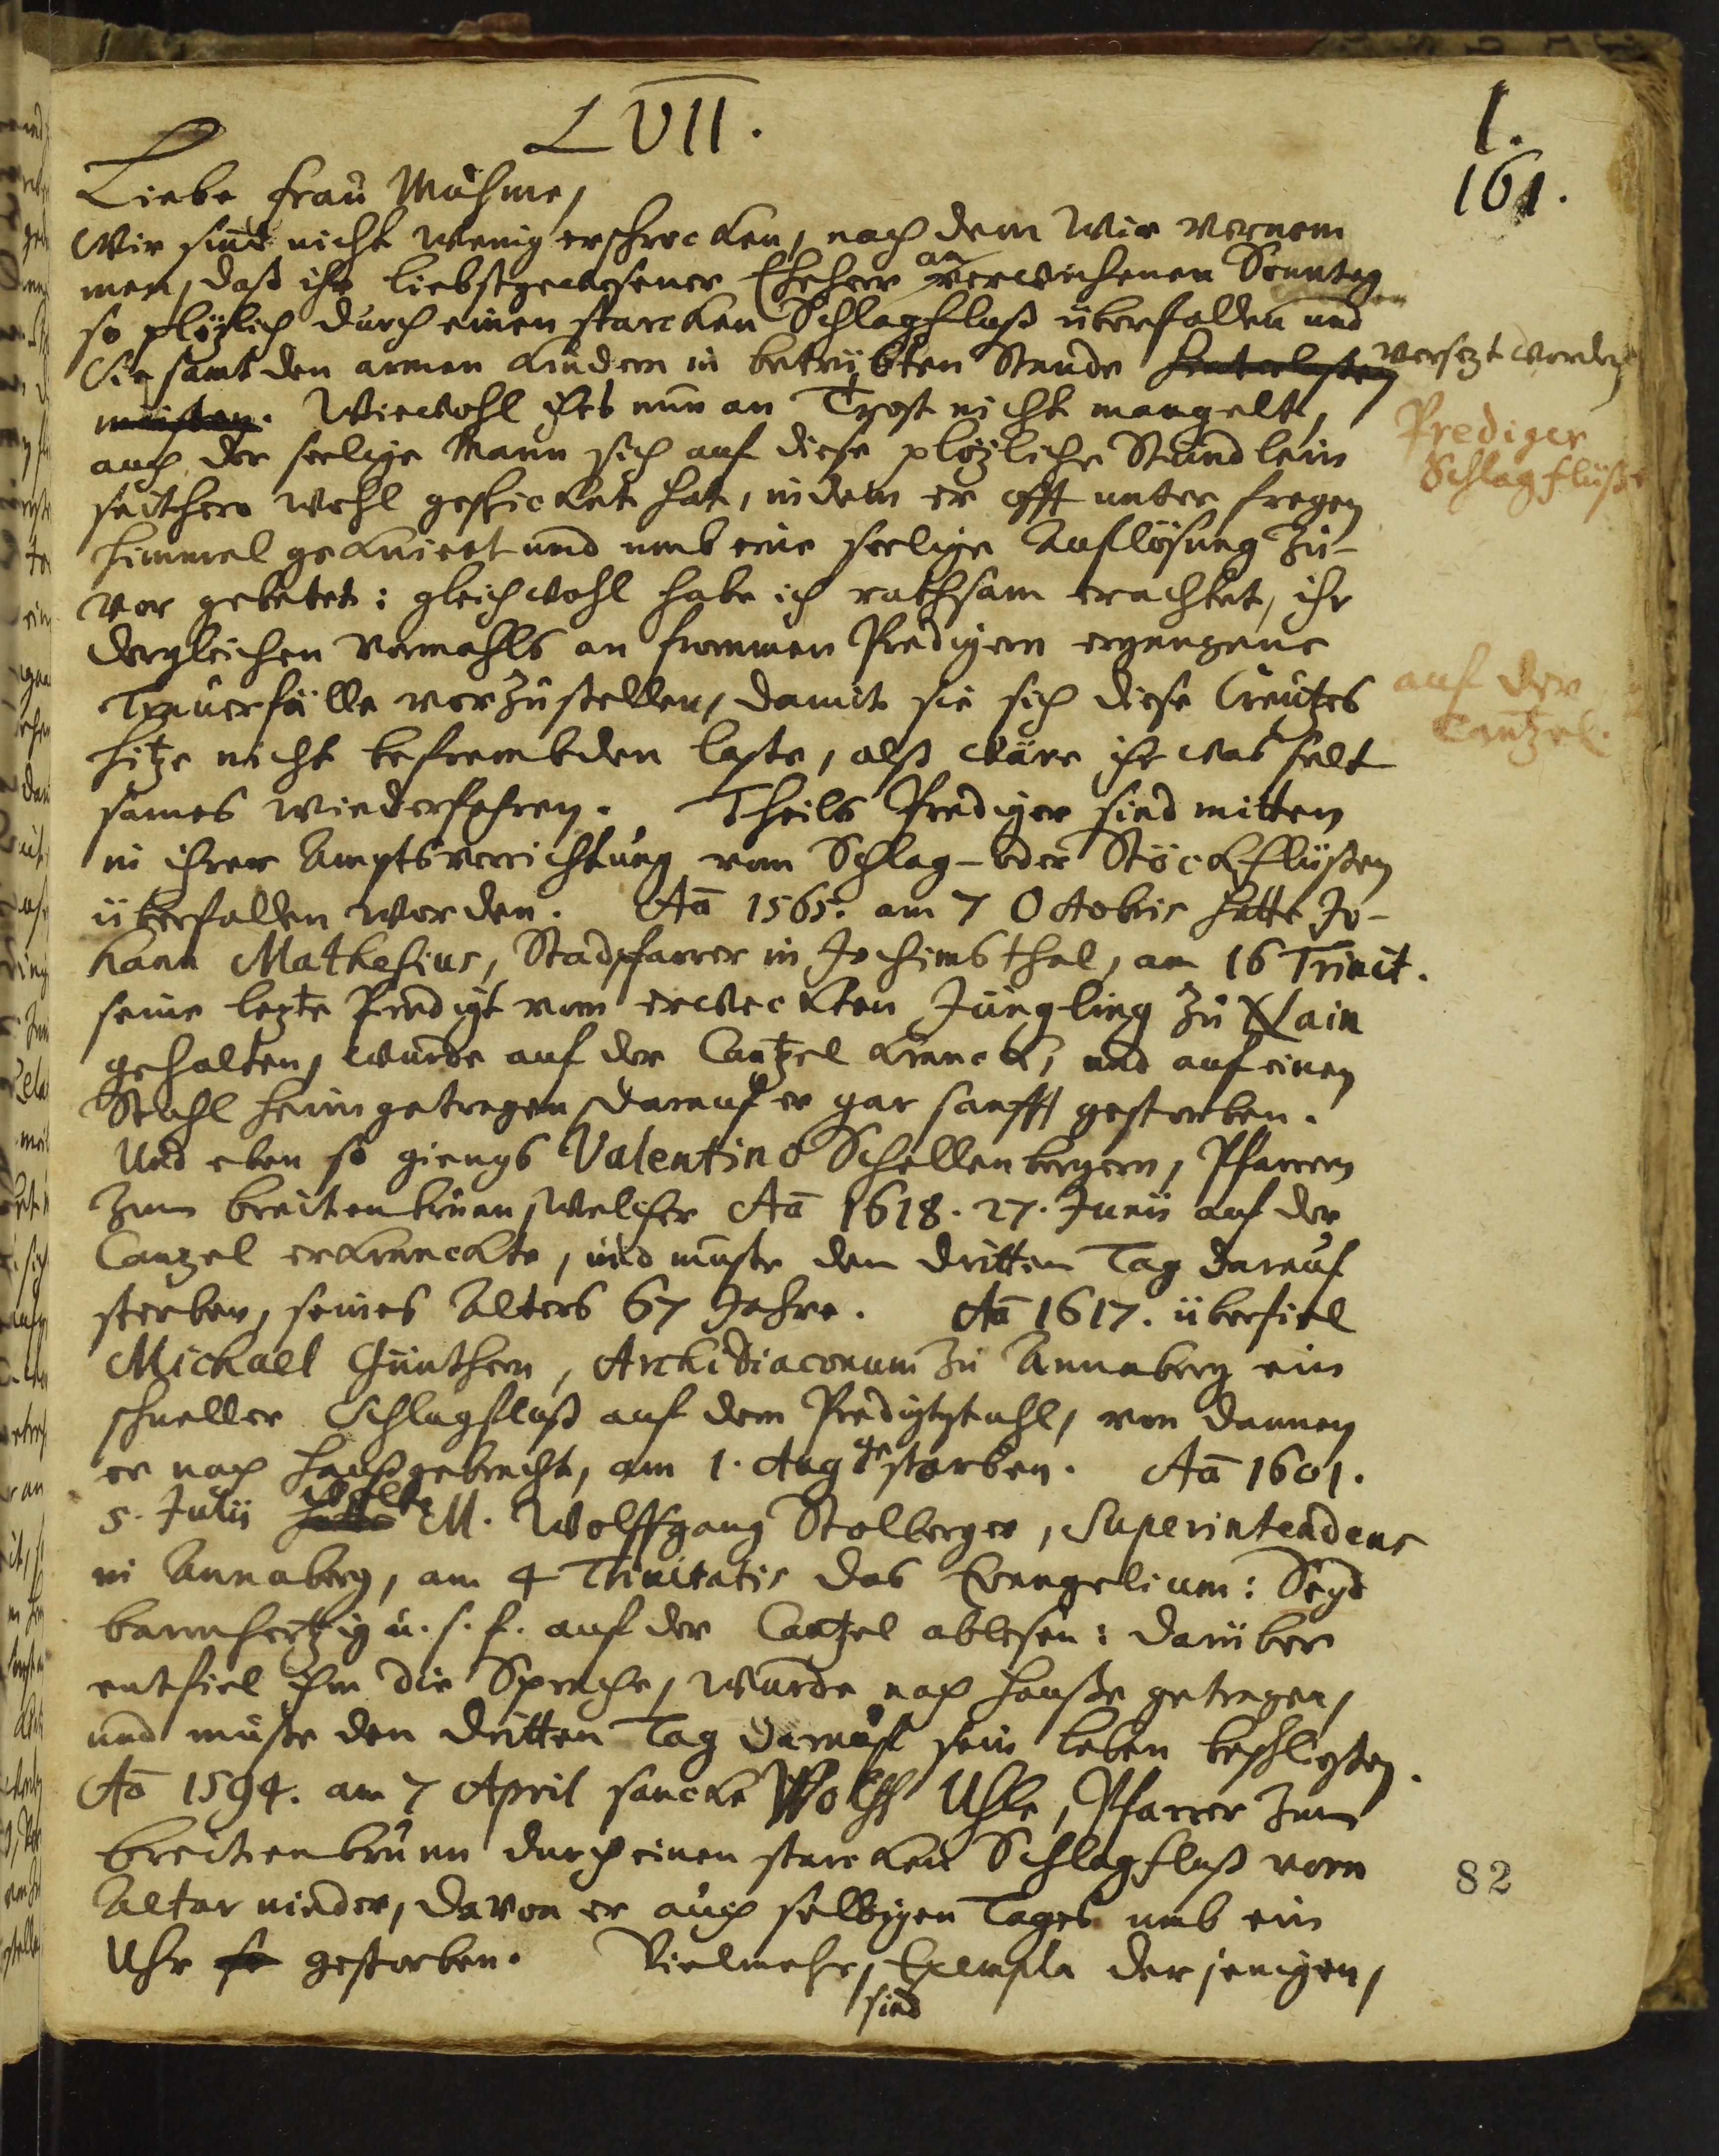 LVII.
1.
161.
Liebe Frau Muhme,
Wir sind nicht wenig erschrocken, nach dem wir vernom
men, daß ihr liebstgewesener Eheherr am verwichenen Sonntag
so plözlich durch einen starcken Schlagfluß überfallen und
Sie samt den armen Kindern in betrübten Stande hinterlaßen versezt worden
müßen. Wiewohl ihrs nun an Trost nicht mangelt,
auch der seelige Mann sich auf diese plözliche Stündlein
seithero wohl geschicket hat, indem er offt unter freyen
Himmel gekniet und umb eine seelige Auflösung zu-
vor gebetet: gleichwohl habe ich rathsam erachtet, ihr
dergleichen vormahls an frommen Predigern ergangene
Trauerfälle vorzustellen, damit sie sich diese Creutzes
Hitze nicht befrembden laste, alß wäre ihr was selt
sames wiederfahren. Theils Prediger sind mitten
in ihrer Amptsverrichtung vom Schlag- oder Stöckflüßen
überfallen worden. Aõ 1565. am 7 Octobris hatte Jo-
hann Mathesius, Stadpfarrer in Jochimsthal, am 16 Trinit.
seine lezte Predigt vom erweckten Jüngling zu Nain
gehalten, wurde auf der Cantzel kranck, und auf einen
Stuhl heimgetragen, darauf er gar sanfft gestorben.
Und eben so giengs Valentino Schellenbergern, Pfarrern
zum breitenbrunn, welcher Aõ 1618. 27. Junii auf der
Canzel erkranckte, und muste den dritten Tag darauf
sterben, seines Alters 67 Jahre. Aõ 1617. überfiel
Michael Günthern, Archidiaconum zu Annaberg ein
schneller Schlagfluß auf dem Predigtstuhl, von dannen
er nach Hauß gebracht, am 1. Aug gestorben. Aõ 1601.
5. Julii hatte wolte M. Wolffgang Stolberger, Superintendens
in Annaberg, am 4 Trinitatis das Evangelium: Seyd
barmhertzig u. s. f. auf der Cantzel ablesen: darüber
entfiel ihm die Sprache, wurde nach Hauße getragen,
und muste den dritten Tag darauf sein Leben beschlißen.
Aõ 1594. am 7 April sancke Wolff Uhle, Pfarrer zum
breitenbrunn durch einen starcken Schlagfluß vorm
Altar nieder, davon er auch selbigen Tages umb ein
Uhr gestorben. Vielmehr sind Exempla derjenigen,
Prediger
Schlagflüße
auf der
Cantzel.
82